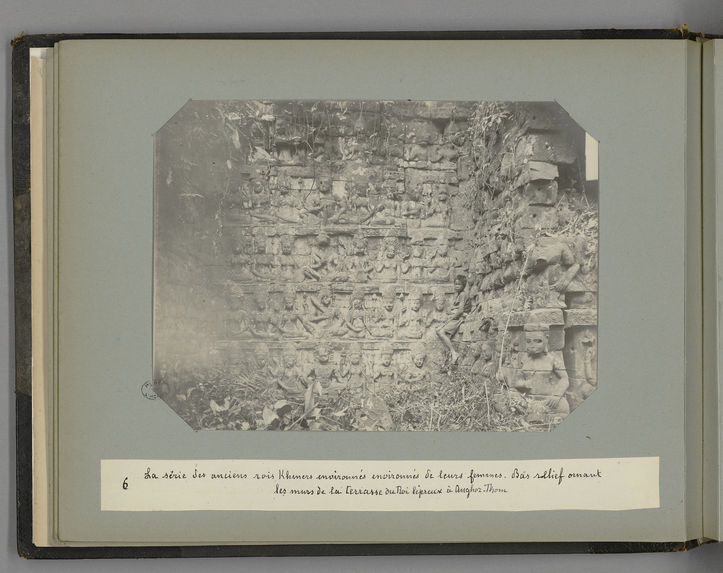 6
La série des anciens rois Khmers environnés environnés de leurs femmes. Bas relief ornant
les murs de la Terrasse du Roi lépreux à Angkor-Thom